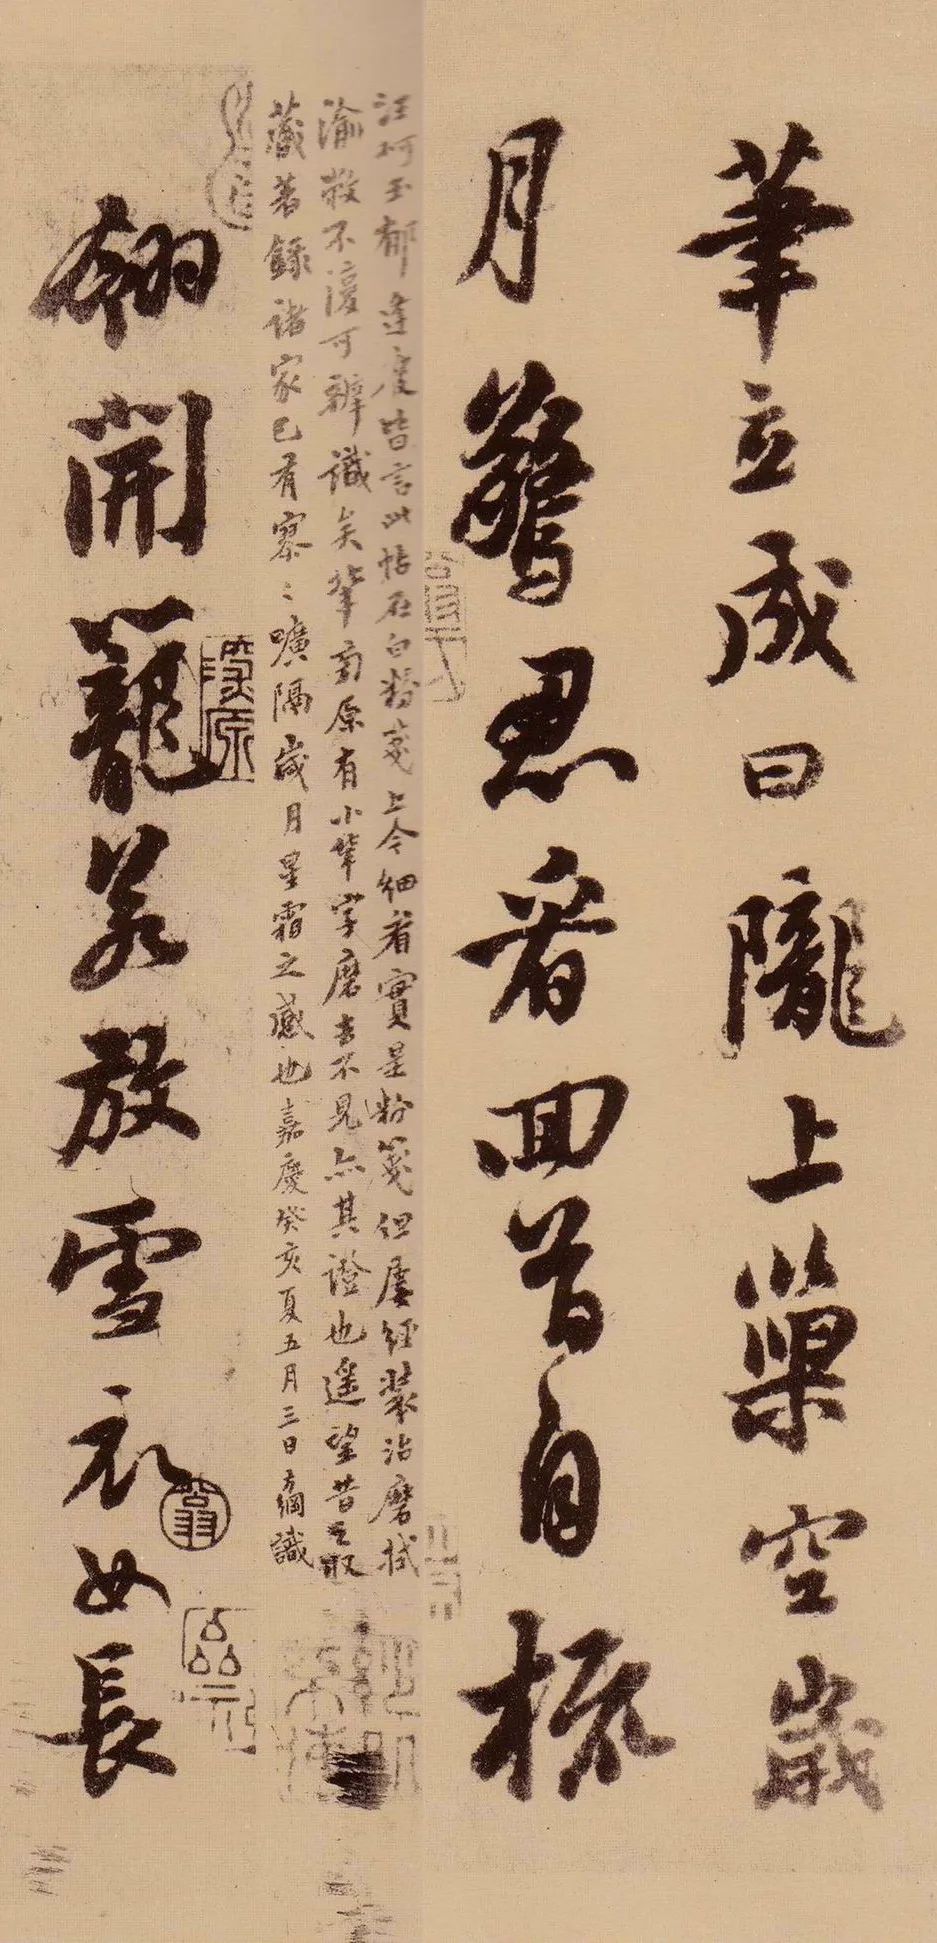 筆立成曰隴上巢空歲
月驚忍看回首自梳
翎開籠若放雪衣女長
汪珂玉郁逢慶皆言此帖在白粉箋上今細看實是粉箋但屢經裝治磨拭
渝敝不復可辨識矣笔前原有小笔字磨去不見亦其證也遥望昔之収
藏著錄諸家已有寥〻曠隔歲月星霜之感也嘉慶癸亥夏五月三日方綱識